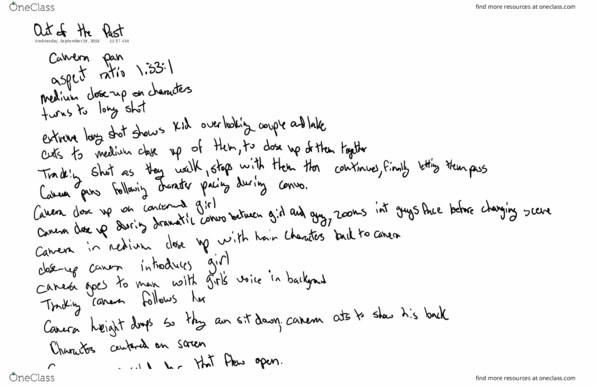 OneClass
find more resources at oneclass.com
Out of the Past
Wednesday, September 19, 2018
Camera pan
aspect ratio 1:33:1
medium close-up on characters
turns to long shot
extreme long shot shows kid overlooking couple and lake
cuts to medium close up of them, to close up of them together
Tracking shot as they walk, stops with them then continues, finally letting them pass
Camera pans following character pacing during convo.
Camera close up on concerned girl
camera close up during dramatic convo between girl and guy, zooms int guys face before changing scene
Camera in medium close up with main characters back to camera
close-up camera introduces girl
camera goes to man with girl's voice in backgrond
Tracking camera follows her
Camera height drops so they can sit down, camera cuts to show his back
Characters centered on screen
that flew open.
OneClass
find more resources at oneclass.com